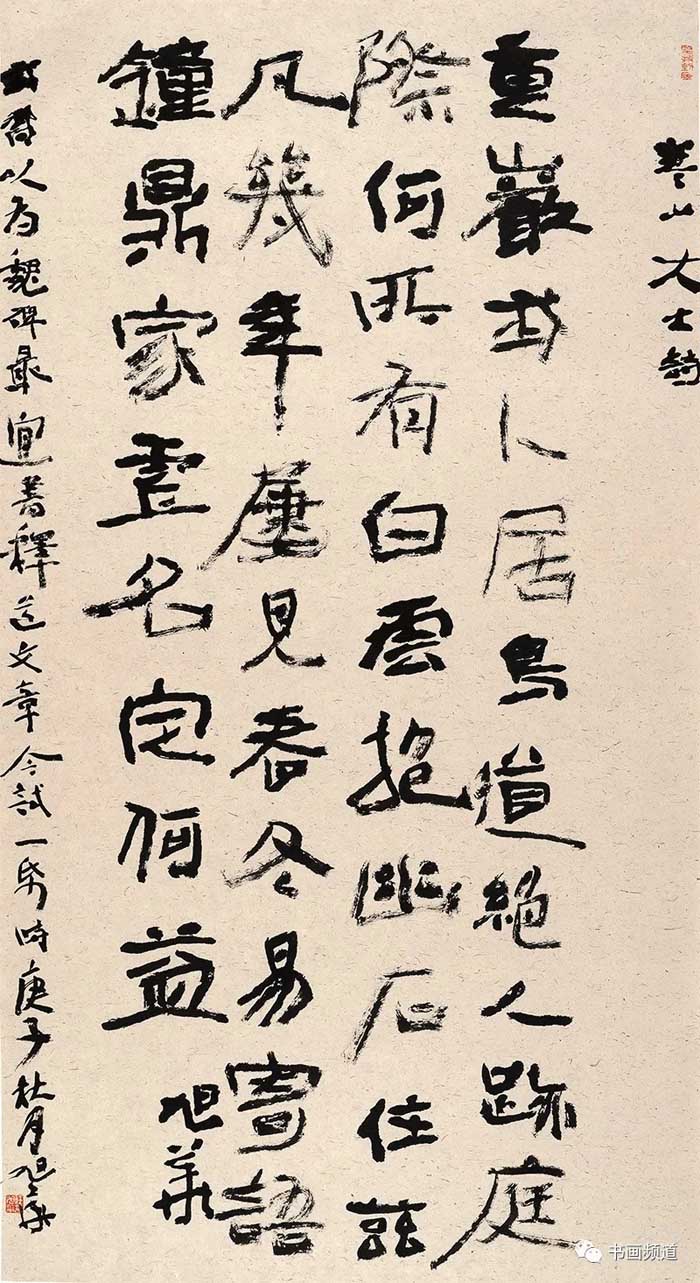 寒山大士詩
重巖我卜居鳥道絕人跡庭
際何所有白雲抱幽石住兹
凡幾年屢見春冬易寄語
鐘鼎家虛名定何益
旭華
我嘗以为魏碑最宜著釋道文章今試一帋時庚子月旭華
书画频道